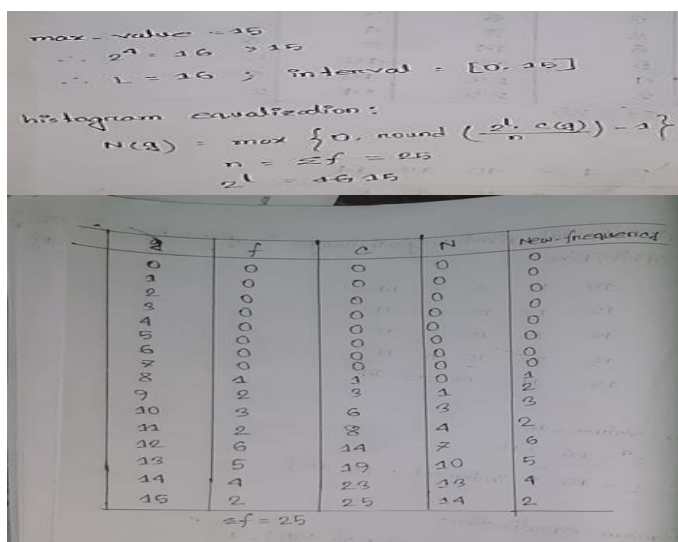 max-value = 15
∴ 2^4 = 16 > 15
∴ L = 16 ; interval = [0, 15]
histogram equalization:
N(g) = max {0, round (2^l. c(g) / n) - 1}
n = Σf = 25
2^l = 16 15
g f c N New-frequencies
0 0 0 0 0
1 0 0 0 0
2 0 0 0 0
3 0 0 0 0
4 0 0 0 0
5 0 0 0 0
6 0 0 0 0
7 0 0 0 0
8 1 1 0 1
9 2 3 1 2
10 3 6 3 3
11 2 8 4 2
12 6 14 7 6
13 5 19 10 5
14 4 23 13 4
15 2 25 14 2
Σf = 25